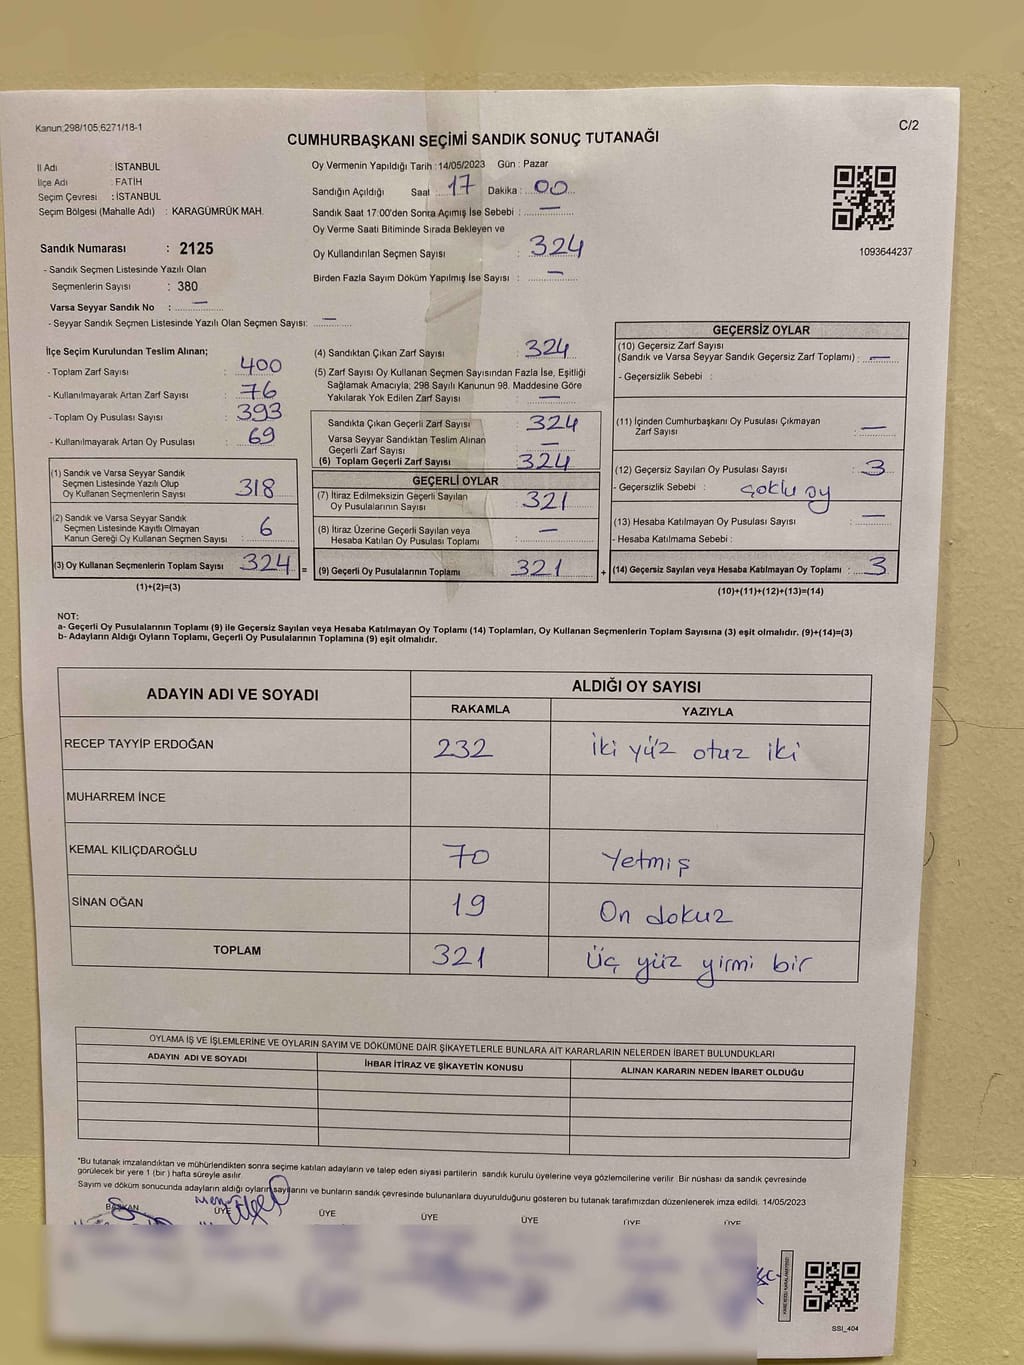 Kanun;298/105,6271/18-1
C/2
CUMHURBAŞKANI SEÇİMİ SANDIK SONUÇ TUTANAĞI
İl Adı : İSTANBUL
İlçe Adı : FATİH
Seçim Çevresi : İSTANBUL
Seçim Bölgesi (Mahalle Adı) : KARAGÜMRÜK MAH.
Sandık Numarası : 2125
- Sandık Seçmen Listesinde Yazılı Olan
Seçmenlerin Sayısı : 380
Varsa Seyyar Sandık No : —
- Seyyar Sandık Seçmen Listesinde Yazılı Olan Seçmen Sayısı: —
Oy Vermenin Yapıldığı Tarih : 14/05/2023 Gün : Pazar
Sandığın Açıldığı Saat 17 Dakika : 00
Sandık Saat 17:00'den Sonra Açımış İse Sebebi : —
Oy Verme Saati Bitiminde Sırada Bekleyen ve
Oy Kullandırılan Seçmen Sayısı : 324
Birden Fazla Sayım Döküm Yapılmış İse Sayısı : —
1093644237
İlçe Seçim Kurulundan Teslim Alınan;
- Toplam Zarf Sayısı : 400
- Kullanılmayarak Artan Zarf Sayısı : 76
- Toplam Oy Pusulası Sayısı : 393
- Kullanılmayarak Artan Oy Pusulası : 69
(1) Sandık ve Varsa Seyyar Sandık
Seçmen Listesinde Yazılı Olup
Oy Kullanan Seçmenlerin Sayısı : 318
(2) Sandık ve Varsa Seyyar Sandık
Seçmen Listesinde Kayıtlı Olmayan
Kanun Gereği Oy Kullanan Seçmen Sayısı : 6
(3) Oy Kullanan Seçmenlerin Toplam Sayısı : 324
(1)+(2)=(3)
(4) Sandıktan Çıkan Zarf Sayısı : 324
(5) Zarf Sayısı Oy Kullanan Seçmen Sayısından Fazla İse, Eşitliği
Sağlamak Amacıyla; 298 Sayılı Kanunun 98. Maddesine Göre
Yakılarak Yok Edilen Zarf Sayısı : —
Sandıkta Çıkan Geçerli Zarf Sayısı : 324
Varsa Seyyar Sandıktan Teslim Alınan
Geçerli Zarf Sayısı : —
(6) Toplam Geçerli Zarf Sayısı : 324
GEÇERLİ OYLAR
(7) İtiraz Edilmeksizin Geçerli Sayılan
Oy Pusulalarının Sayısı : 321
(8) İtiraz Üzerine Geçerli Sayılan veya
Hesaba Katılan Oy Pusulası Toplamı : —
= (9) Geçerli Oy Pusulalarının Toplamı : 321
GEÇERSİZ OYLAR
(10) Geçersiz Zarf Sayısı
(Sandık ve Varsa Seyyar Sandık Geçersiz Zarf Toplamı) : —
- Geçersizlik Sebebi :
(11) İçinden Cumhurbaşkanı Oy Pusulası Çıkmayan
Zarf Sayısı : —
(12) Geçersiz Sayılan Oy Pusulası Sayısı : 3
- Geçersizlik Sebebi : çoklu oy
(13) Hesaba Katılmayan Oy Pusulası Sayısı : —
- Hesaba Katılmama Sebebi :
+ (14) Geçersiz Sayılan veya Hesaba Katılmayan Oy Toplamı : 3
(10)+(11)+(12)+(13)=(14)
NOT:
a- Geçerli Oy Pusulalarının Toplamı (9) ile Geçersiz Sayılan veya Hesaba Katılmayan Oy Toplamı (14) Toplamları, Oy Kullanan Seçmenlerin Toplam Sayısına (3) eşit olmalıdır. (9)+(14)=(3)
b- Adayların Aldığı Oyların Toplamı, Geçerli Oy Pusulalarının Toplamına (9) eşit olmalıdır.
ADAYIN ADI VE SOYADI
ALDIĞI OY SAYISI
RAKAMLA YAZIYLA
RECEP TAYYİP ERDOĞAN 232 iki yüz otuz iki
MUHARREM İNCE
KEMAL KILIÇDAROĞLU 70 Yetmiş
SİNAN OĞAN 19 On dokuz
TOPLAM 321 Üç yüz yirmi bir
OYLAMA İŞ VE İŞLEMLERİNE VE OYLARIN SAYIM VE DÖKÜMÜNE DAİR ŞİKAYETLERLE BUNLARA AİT KARARLARIN NELERDEN İBARET BULUNDUKLARI
ADAYIN ADI VE SOYADI İHBAR İTİRAZ VE ŞİKAYETİN KONUSU ALINAN KARARIN NEDEN İBARET OLDUĞU
*Bu tutanak imzalandıktan ve mühürlendikten sonra seçime katılan adayların ve talep eden siyasi partilerin sandık kurulu üyelerine veya gözlemcilerine verilir. Bir nüshası da sandık çevresinde
görülecek bir yere 1 (bir) hafta süreyle asılır.
Sayım ve döküm sonucunda adayların aldığı oyların sayılarını ve bunların sandık çevresinde bulunanlara duyurulduğunu gösteren bu tutanak tarafımızdan düzenlenerek imza edildi. 14/05/2023
BAŞKAN ÜYE ÜYE ÜYE ÜYE ÜYE ÜYE
SSI_404